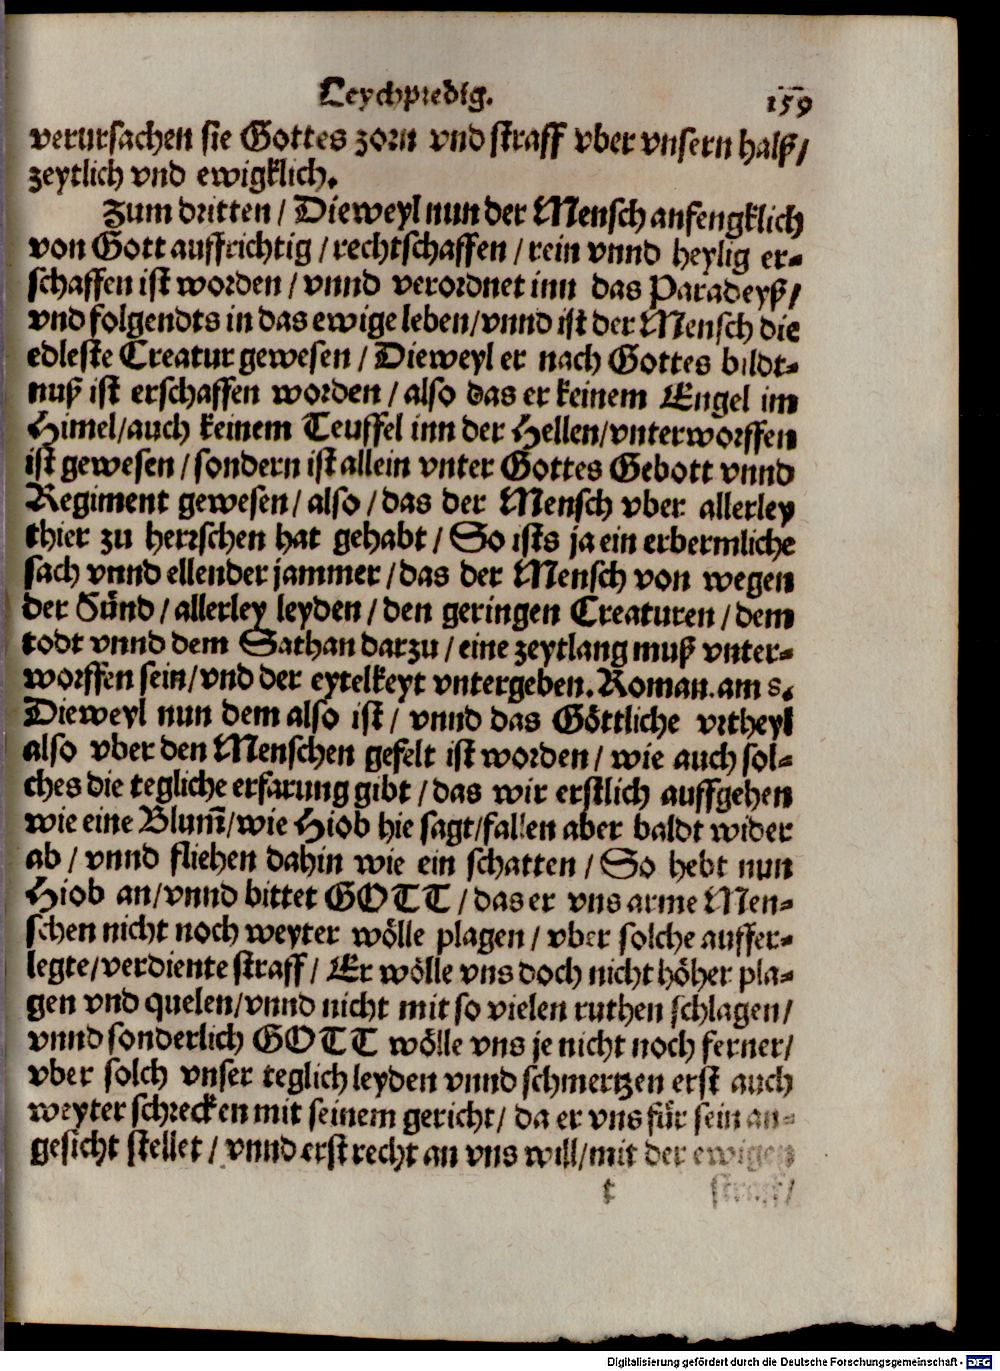 Leychpredig. 159
verursachen sie Gottes zorn vnd straff vber vnsern halß/
zeytlich vnd ewigklich.
Zum dritten / Dieweyl nun der Mensch anfengklich
von Gott auffrichtig / rechtschaffen / rein vnnd heylig er-
schaffen ist worden / vnnd verordnet inn das Paradeyß/
vnd folgendts in das ewige leben/vnnd ist der Mensch die
edleste Creatur gewesen / Dieweyl er nach Gottes bildt-
nuß ist erschaffen worden / also das er keinem Engel im
Himel/auch keinem Teuffel inn der Hellen/vnterworffen
ist gewesen / sondern ist allein vnter Gottes Gebott vnnd
Regiment gewesen / also / das der Mensch vber allerley
thier zu herrschen hat gehabt / So ists ja ein erbermliche
sach vnnd ellender jammer / das der Mensch von wegen
der Sünd / allerley leyden / den geringen Creaturen / dem
todt vnnd dem Sathan darzu / eine zeytlang muß vnter-
worffen sein/vnd der eytelkeyt vntergeben. Roman. am 8.
Dieweyl nun dem also ist / vnnd das Göttliche vrtheyl
also vber den Menschen gefelt ist worden / wie auch sol-
ches die tegliche erfarung gibt / das wir erstlich auffgehen
wie eine Blum̃/wie Hiob hie sagt/fallen aber baldt wider
ab / vnnd fliehen dahin wie ein schatten / So hebt nun
Hiob an/vnnd bittet GOTT / das er vns arme Men-
schen nicht noch weyter wölle plagen / vber solche auffer-
legte/verdiente straff / Er wölle vns doch nicht höher pla-
gen vnd quelen/vnnd nicht mit so vielen ruthen schlagen/
vnnd sonderlich GOTT wölle vns je nicht noch ferner/
vber solch vnser teglich leyden vnnd schmertzen erst auch
weyter schrecken mit seinem gericht/ da er vns für sein an-
gesicht stellet / vnnd erst recht an vns will/mit der ewigen
t straff/
Digitalisierung gefördert durch die Deutsche Forschungsgemeinschaft - DFG